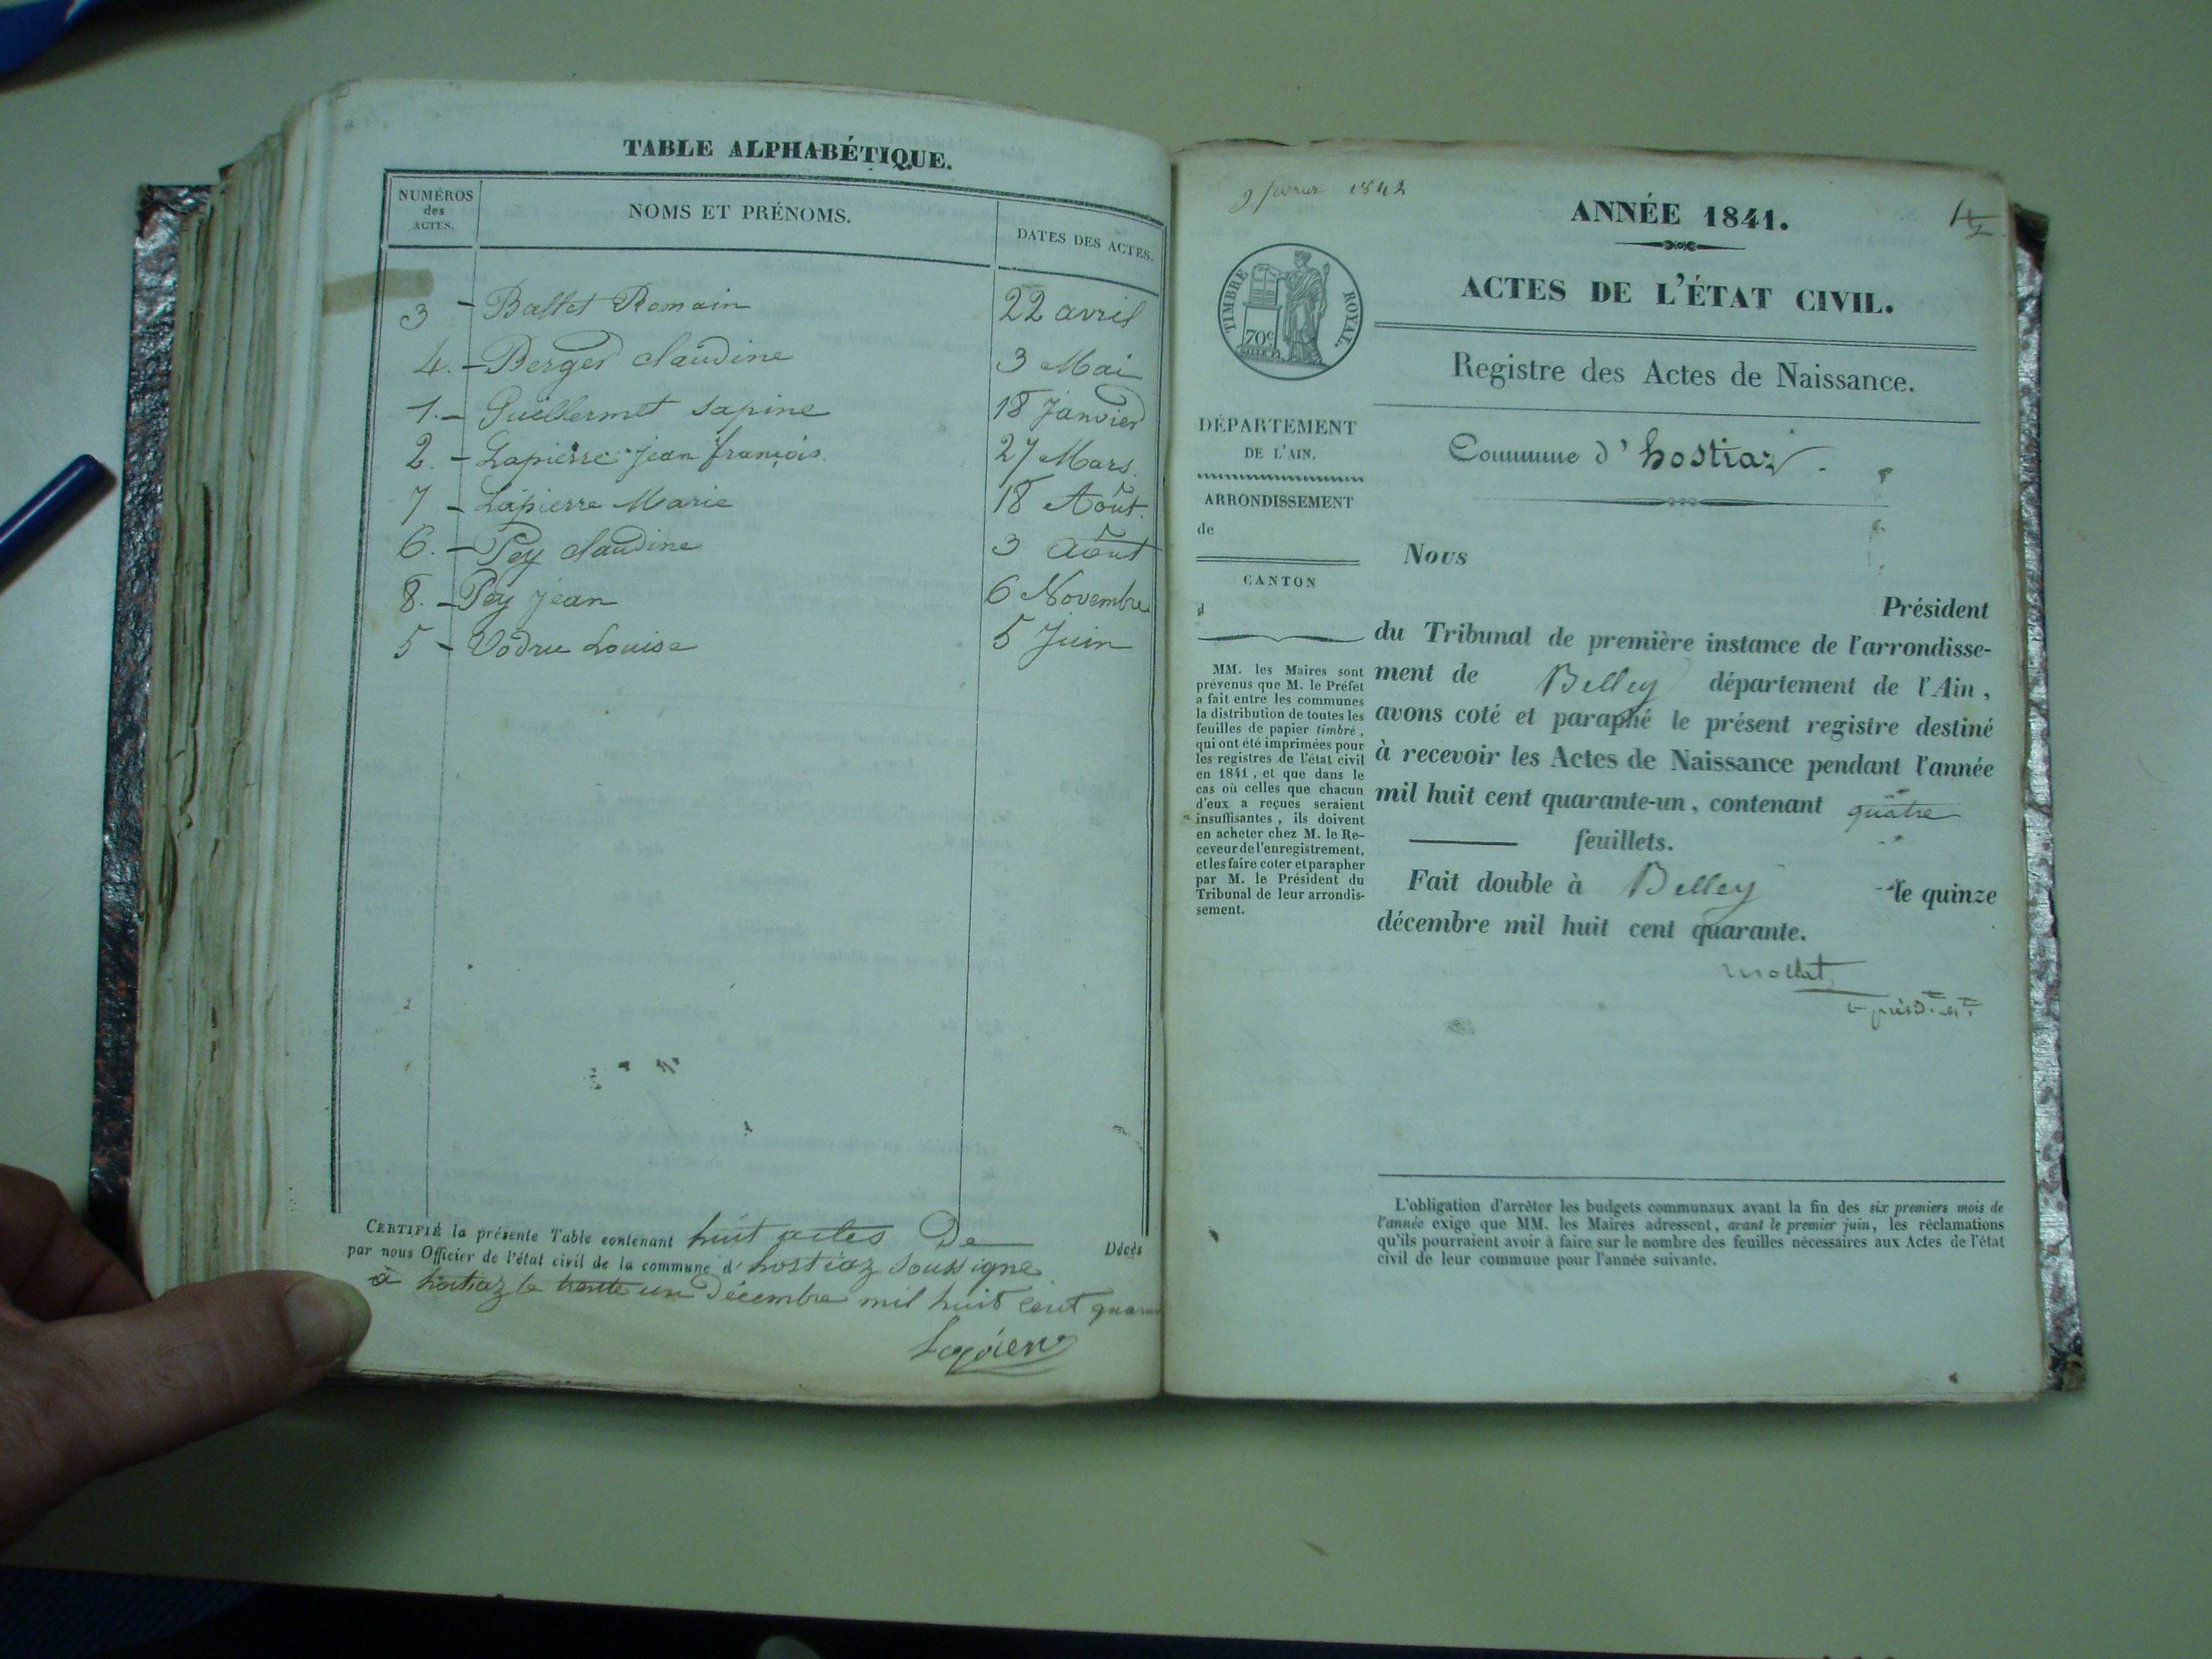 TABLE ALPHABÉTIQUE.
NUMÉROS
des
ACTES.
NOMS ET PRÉNOMS.
DATES DES ACTES.
3 - Ballet Romain 22 avril
4. - Berger claudine 3 Mai
1. - Guillermet sapine 18 Janvier
2. - Lapierre jean françois. 27 Mars.
7 - Lapierre Marie 18 Août.
6. - Pey claudine 3 août
8. - Pey jean 6 Novembre
5 - Vodru Louise 5 Juin
CERTIFIÉ la présente Table contenant huit actes De Décès
par nous Officier de l'état civil de la commune d' hostiaz soussigné
à hostiaz le trente un Décembre mil huit cent
9 février 1842
ANNÉE 1841.
ACTES DE L'ÉTAT CIVIL.
TIMBRE ROYAL.
70c
Registre des Actes de Naissance.
Commune d' hostiaz.
DÉPARTEMENT
DE L'AIN.
ARRONDISSEMENT
de
CANTON
d
MM. les Maires sont
prévenus que M. le Préfet
a fait entre les communes
la distribution de toutes les
feuilles de papier timbré,
qui ont été imprimées pour
les registres de l'état civil
en 1841, et que dans le
cas où celles que chacun
d'eux a reçues seraient
insuffisantes, ils doivent
en acheter chez M. le Re-
ceveur de l'enregistrement,
et les faire coter et parapher
par M. le Président du
Tribunal de leur arrondis-
sement.
Nous
Président
du Tribunal de première instance de l'arrondisse-
ment de Belley département de l'Ain,
avons coté et paraphé le présent registre destiné
à recevoir les Actes de Naissance pendant l'année
mil huit cent quarante-un, contenant quatre
feuillets.
Fait double à Belley le quinze
décembre mil huit cent quarante.
L'obligation d'arrêter les budgets communaux avant la fin des six premiers mois de
l'année exige que MM. les Maires adressent, avant le premier juin, les réclamations
qu'ils pourraient avoir à faire sur le nombre des feuilles nécessaires aux Actes de l'état
civil de leur commune pour l'année suivante.